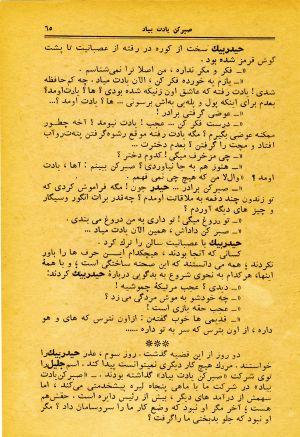 صبر کن یادت بیاد ۶۵
حیدربیك سخت از کوره در رفته از عصبانیت تا پشت
گوش قرمز شده بود.
«ـ فکر و مکر نداره ، من اصلا ترا نمی‌شناسم .
«ـ بازم یه خورده فکر کن ، الآن یادت میاد . چه کم‌حافظه
شدی! یادت رفته که عاشق اون زنیکه شده بودی ؟ ها ؟ یادت‌اومد؟
بعدم برای اینکه پول و پله‌یی به‌اش برسونی ... ها ؟ یادت اومد ؟...
«ـ عوضی گرفتی برادر !
«ـ درست فکر کن ... عجب ! یادت نیومد ؟ آخه چطور
ممکنه عوضی بگیرم ؟ مگه یادت رفته موقع رشوه‌گرفتن پته‌ت‌روآب
افتاد و مچت را گرفتن ؟ بعدم دخترت ...
«ـ چی مزخرف میگی ! کدوم دختر ؟
«ـ هنوز هم به جا نیاوردی؟ صبر کن ببینم : آها ، یادت
اومد ؟ «ـ واللا من که هیچ چی نمی فهمم .
«ـ صبر کن برادر ... حیدر جون ! مگه فراموش کردی که
تو زندون چند دفعه به ملاقاتت اومدم ؟ چه‌قدر برات انگور وسیگار
و چیز های دیگه آوردم ؟
«ـ تو روغ میگی ! تو داری به من دروغ می بندی .
«ـ صبر کن داداش ، همین الآن یادت میاد ...
حیدربیك با عصبانیت سالن را ترك کرد .
کسانی که آنجا بودند ، هیچکدام این حرف ها را باور
نکردند ، همه می دانستند که این صحنه ساختگی است ؛ و با همهٔ
اینها، هرکدام به نحوی شروع به بدگویی دربارهٔ حیدربیك کردند:
«ـ دیدی ؟ عجب مرتیکهٔ چموشیه !
«ـ چه خودشو به موش مردگی می زد ؟
«ـ عجب حقه بازی است !
«ـ قدیمی ها خوب گفتین : ازاون نترس که های و هو
داره ، از اون بترس که سر به تو داره ......
***
دو روز از این قضیه گذشت . روز سوم ، عذر حیدربیك‌را
خواستند . مردك هیچ کار دیگری نمیتوانست پیدا کند . اسم جلیل‌را
توی شرکت «صبر کن یادت بیاد» گذاشته بودند . ـ «صبر کن‌یادت
بیاد» در شرکت ما با ماهی پنجاه لیره پیشخدمتی می‌کند ، اما
سهمش از درآمد های دیگر ، بیش از رئیس دایره است . حقش‌هم
هست ؛ آخر مگر او نبود که وضع کار ما را سروسامان داد ؟ مگر
او نبود که جلو بدبختی ما را گرفت ؟